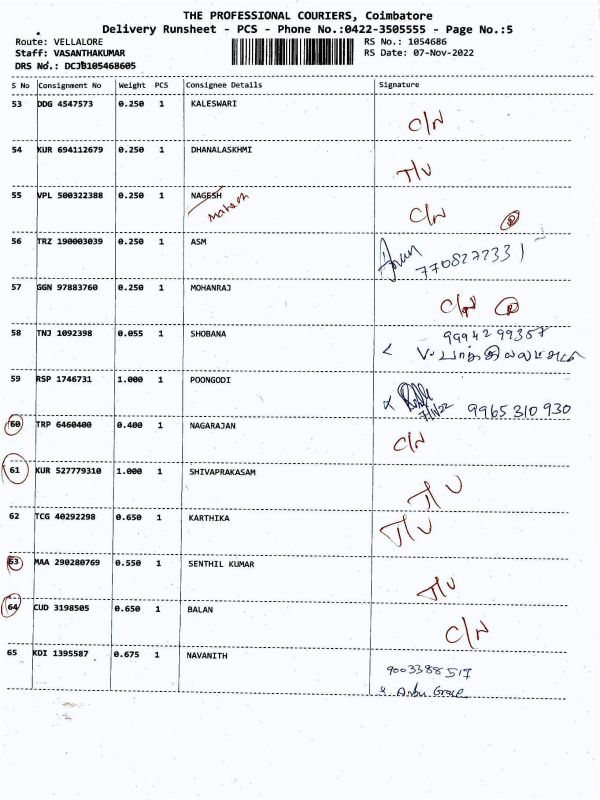 THE PROFESSIONAL COURIERS, Coimbatore
Delivery Runsheet - PCS - Phone No.:0422-3505555 - Page No.:5
Route: VELLALORE RS No.: 1054686
Staff: VASANTHAKUMAR RS Date: 07-Nov-2022
DRS No.: DCJB105468605
S No Consignment No Weight PCS Consignee Details Signature
53 DDG 4547573 0.250 1 KALESWARI
C/N
54 KUR 694112679 0.250 1 DHANALASKHMI
T/V
55 VPL 500322388 0.250 1 NAGESH
Mahesh C/N
56 TRZ 190003039 0.250 1 ASM
7708272331
57 GGN 97883760 0.250 1 MOHANRAJ
C/N
58 TNJ 1092398 0.055 1 SHOBANA
9994299357
59 RSP 1746731 1.000 1 POONGODI
7/11/22 9965310930
60 TRP 6460400 0.400 1 NAGARAJAN
C/N
61 KUR 527779310 1.000 1 SHIVAPRAKASAM
T/V
62 TCG 40292298 0.650 1 KARTHIKA
T/V
63 MAA 290280769 0.550 1 SENTHIL KUMAR
T/V
64 CUD 3198505 0.650 1 BALAN
C/N
65 KDI 1395587 0.675 1 NAVANITH
9003388517
Anbu Group